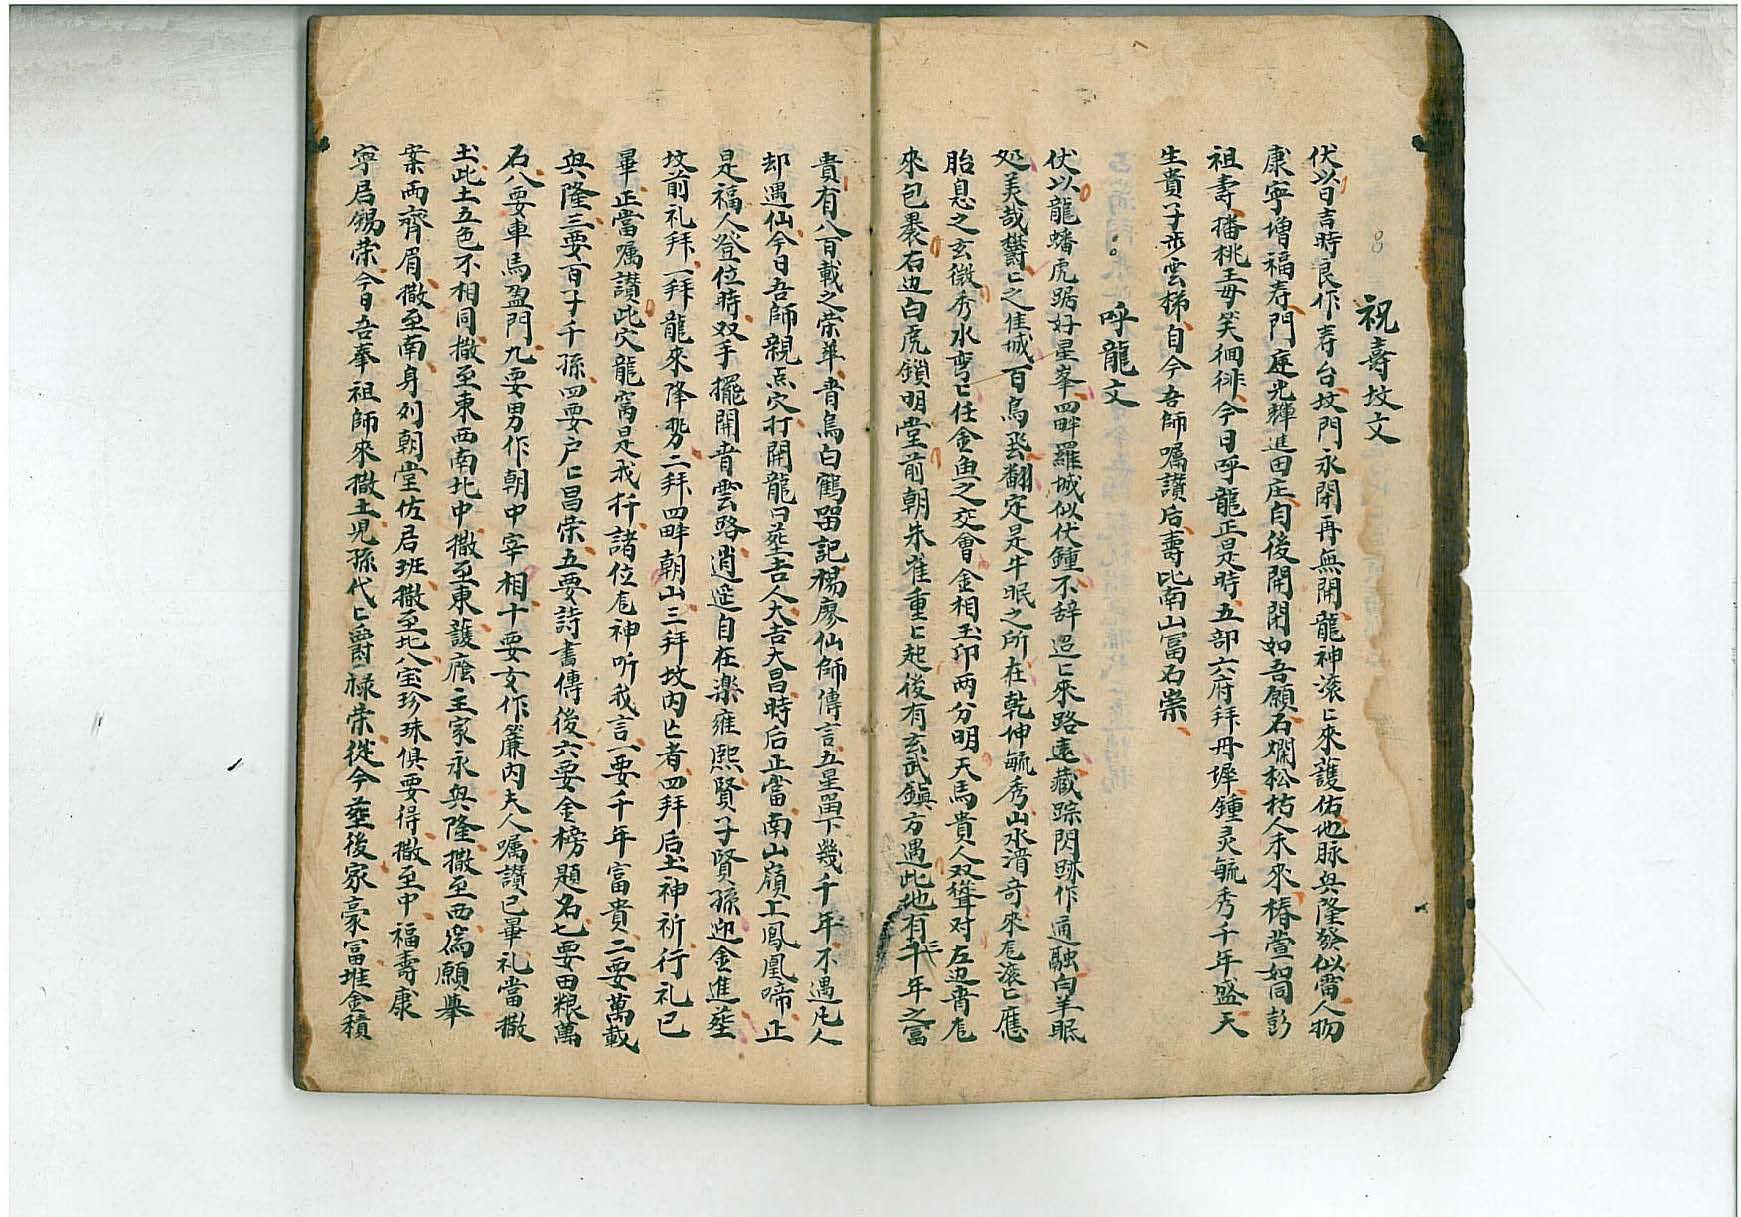 祝壽坟文
伏以日吉時良作寿台坟門永閉再無開龍神滚匕來護佑地脉兴隆發似雷人物
康寧增福寿門庭光輝進田庄自後開閉如吾願石爛松枯人未來椿萱如同彭
祖壽播桃王母笑徊徘今日呼龍正是時五部六府拜丹墀鍾灵毓秀千年盛天
生貴子步雲梯自今吾師囑讃后壽比南山富石崇
呼龍文
伏以龍蟠虎踞好星峯四畔羅城似伏鍾不辞迢匕來路遠藏踪閃跡作通融白羊眠
处美哉欝匕之佳城百鳥飛翻定是牛眠之所在乾坤毓秀山水清奇來龙滚匕應
胎息之玄微秀水弯匕任金鱼之交會金相玉印两分明天馬貴人双聳对左边青龙
來包裹右边白虎鎖明堂前朝朱雀重匕起後有玄武鎮方遇此地有三千年之富
貴有八百載之荣華青鳥白鶴留記楊廖仙師傳言五星留下幾千年不遇凡人
却遇仙今日吾師親点穴打開龍口塟吉人大吉大昌時后正當南山嶺上鳳凰啼正
是福人登位時双手擺開青雲路逍遥自在楽雍熙賢子賢孫迎金進塟
坟前礼拜一拜龍來降势二拜四畔朝山三拜坟内匕者四拜后土神祈行礼已
畢正當囑讃此穴龍窩是我扦諸位龙神听我言一要千年富貴二要萬載
兴隆三要百子千孫四要户匕昌荣五要詩書傳後六要金榜題名七要田粮萬
石八要車馬盈門九要男作朝中宰相十要女作簾内夫人囑讃已畢礼當撒
土此土五色不相同撒至東西南北中撒至東護䕃主家永兴隆撒至西為願舉
案兩齊眉撒至南身列朝堂佐君班撒至北八宝珍珠俱要得撒至中福壽康
寧居錫荣今日吾奉祖師來撒土児孫代匕爵禄荣從今塟後家豪富堆金積